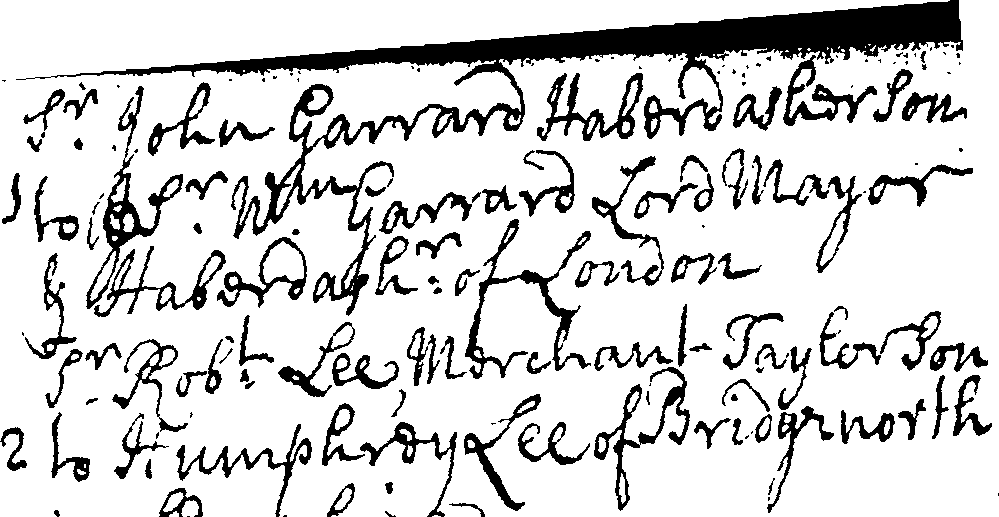 Sr. John Garrard Haberdasher Son
1 to Sr. Wm. Garrard Lord Mayor
& Haberdashr: of London
Sr. Robt: Lee, Merchant Taylor Son
2 to Humphrey Lee of Bridgnorth